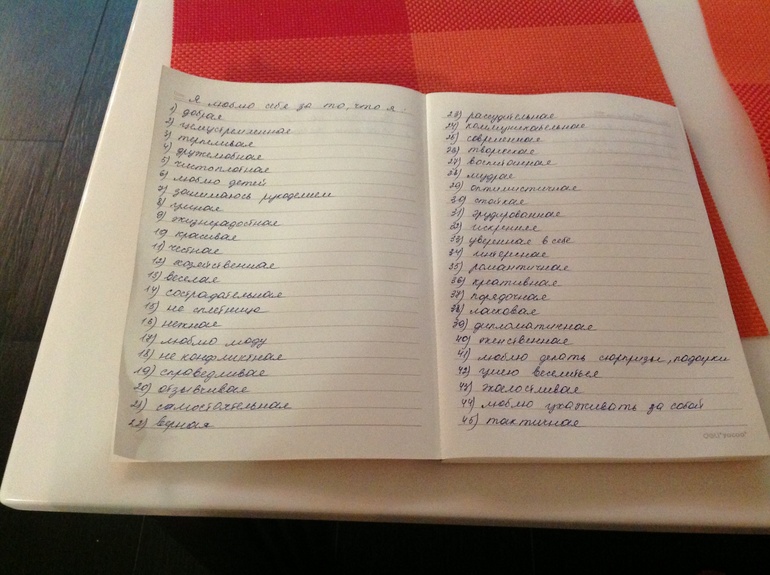 Я люблю себя за то, что я
1) добрая
2) целеустремленная
3) терпеливая
4) дружелюбная
5) чистоплотная
6) люблю детей
7) занимаюсь рукоделием
8)
9) жизнерадостная
10) красивая
11) честная
12) хозяйственная
13) веселая
14) сострадательная
15) не сплетница
16) нежная
17) люблю моду
18) не конфликтная
19) справедливая
20) отзывчивая
21) самостоятельная
22) верная
23) рассудительная
24) коммуникабельная
25) современная
26) творческая
27) воспитанная
28) мудрая
29) оптимистичная
30) стойкая
31) эрудированная
32) искренняя
33) уверенная в себе
34)
35) романтичная
36) креативная
37) порядочная
38) ласковая
39) дипломатичная
40) женственная
41) люблю делать сюрпризы, подарки
42) умею веселиться
43) жалостливая
44) люблю ухаживать за собой
45) тактичная